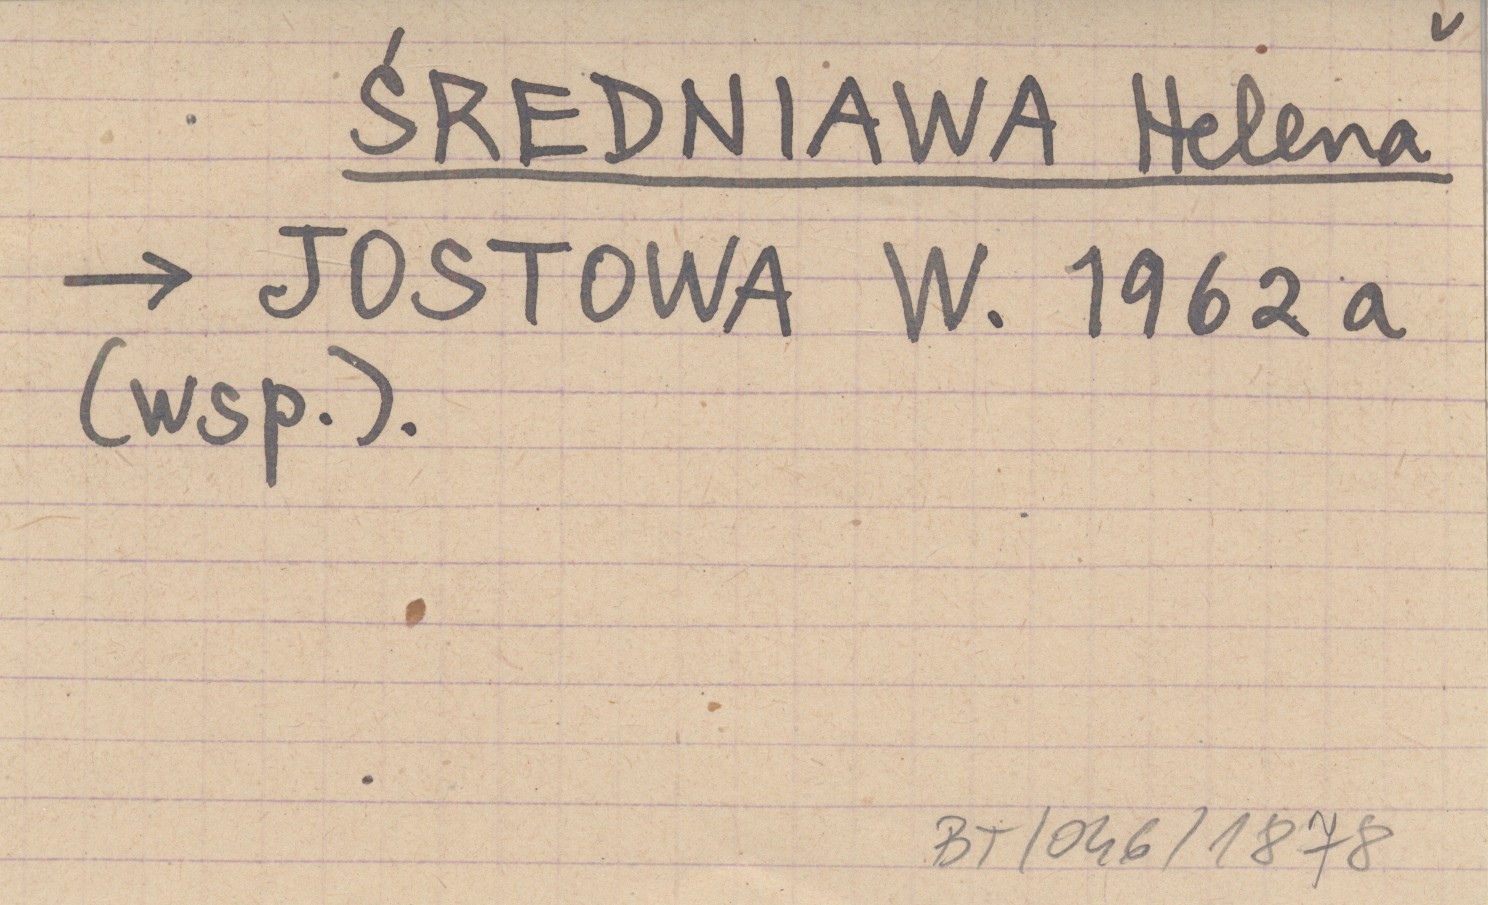 v
ŚREDNIAWA Helena
→ JOSTOWA W. 1962 a
(wsp.).
BT/046/1878